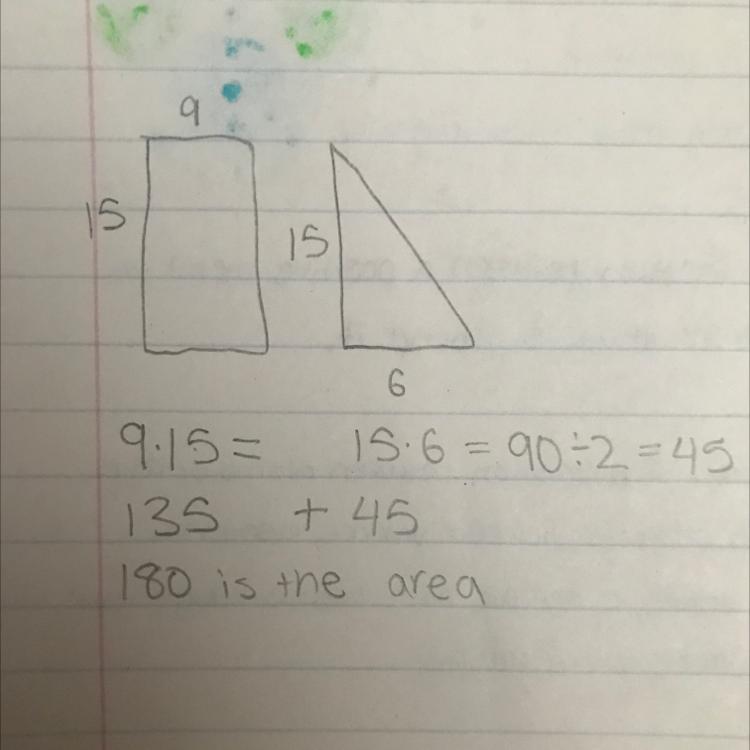 9
15
15
6
9·15= 15·6 = 90÷2 = 45
135 + 45
180 is the area